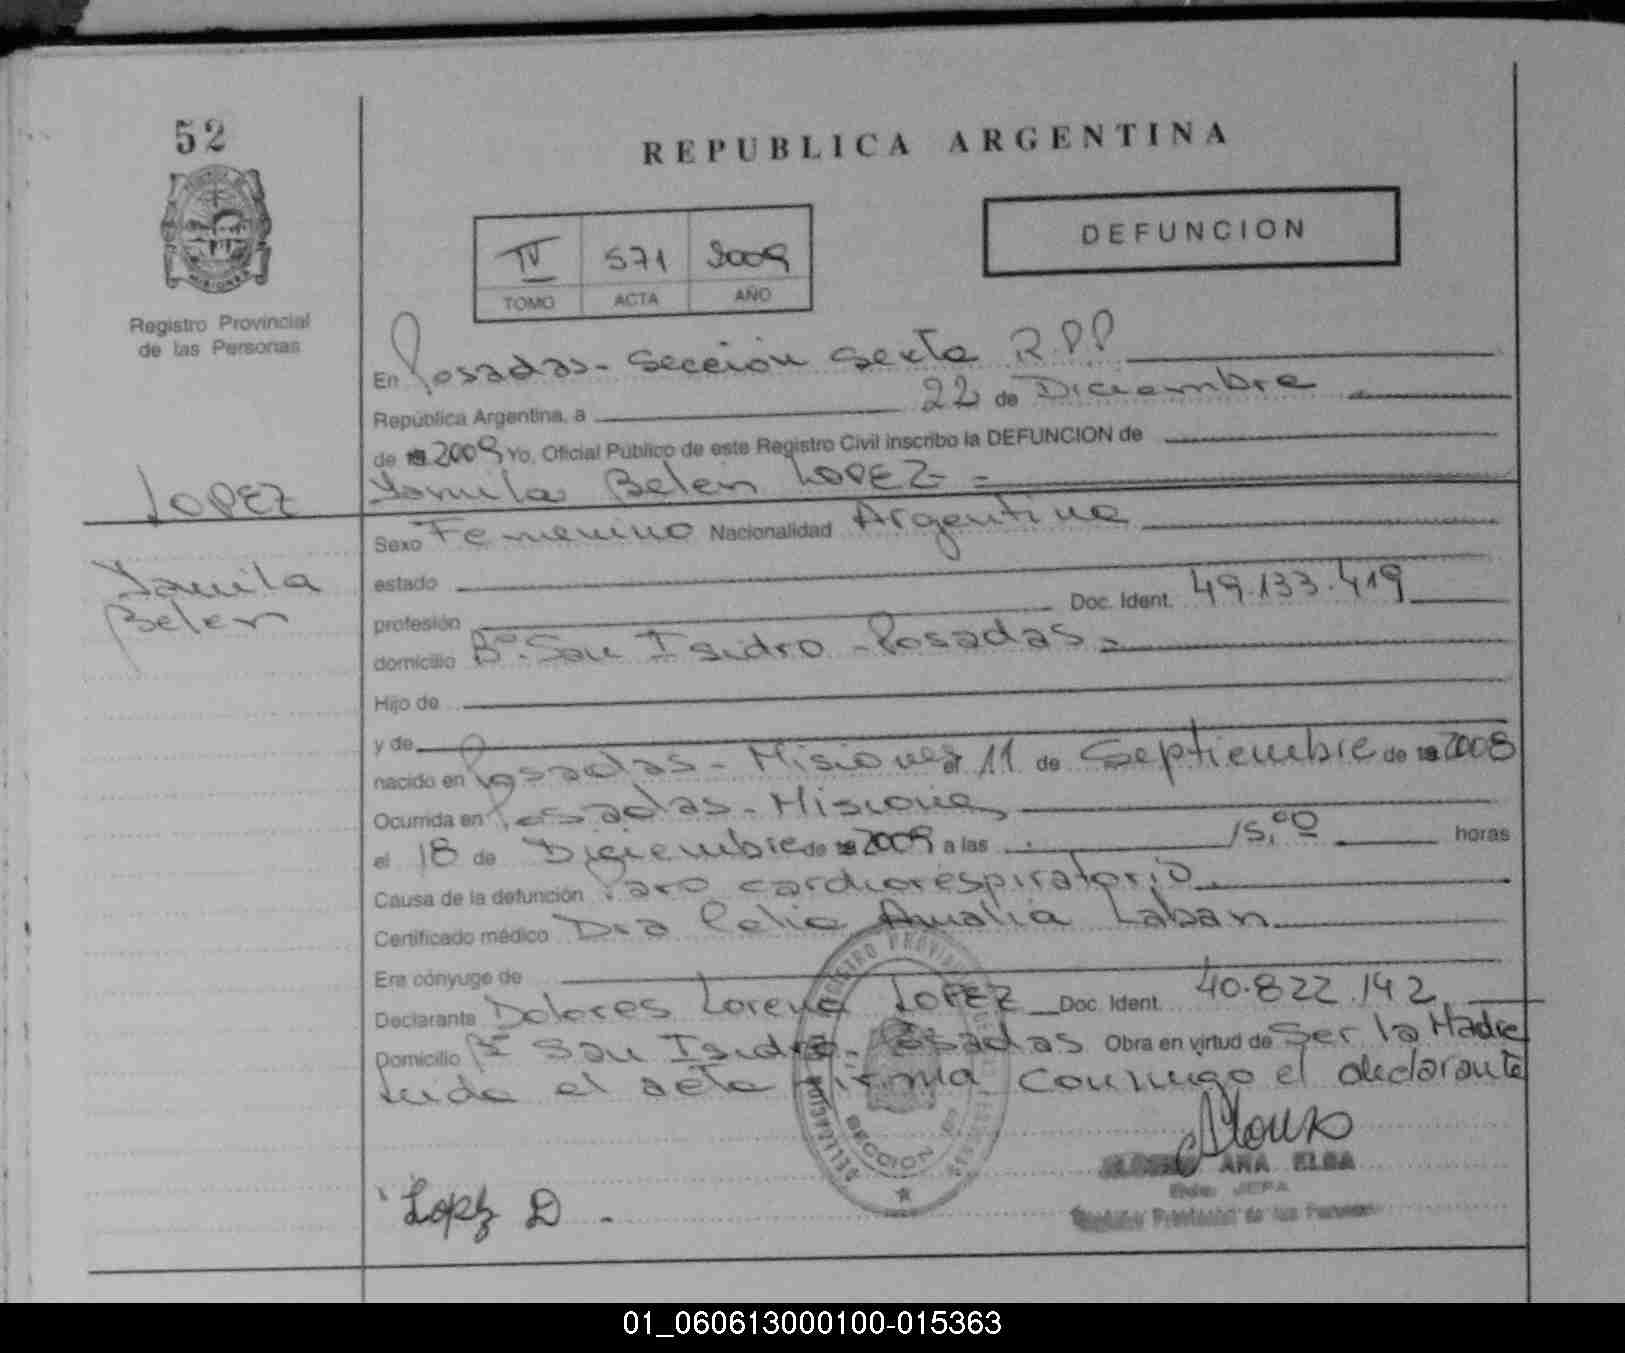 52
REPUBLICA ARGENTINA
IV 571 2009
TOMO ACTA AÑO
DEFUNCION
Registro Provincial
de las Personas
En Posadas - Sección Sexta R.P.P
República Argentina, a 22 de Diciembre
de 2009 Yo, Oficial Público de este Registro Civil inscribo la DEFUNCION de
LOPEZ
Yamila Belen LOPEZ
Yamila
Belen
Sexo Femenino Nacionalidad Argentina
estado
profesión Doc. Ident. 49.133.419
domicilio Bº. San Isidro - Posadas
Hijo de
y de
nacido en Posadas - Misiones el 11 de Septiembre de 2008
Ocurrida en Posadas - Misiones
el 18 de Diciembre de 2009 a las 15,00 horas
Causa de la defunción Paro cardiorespiratorio
Certificado médico Dra Celia Amalia Laban
Era cónyuge de
Declarante Dolores Lorena LOPEZ Doc. Ident. 40.822.142
Domicilio Bº San Isidro - Posadas Obra en virtud de Ser la Madre
Leida el acta firma conmigo el declarante
SECCION
Lopez D.
Alonso
ANA ELBA
Registro Provincial de las Personas
01_060613000100-015363